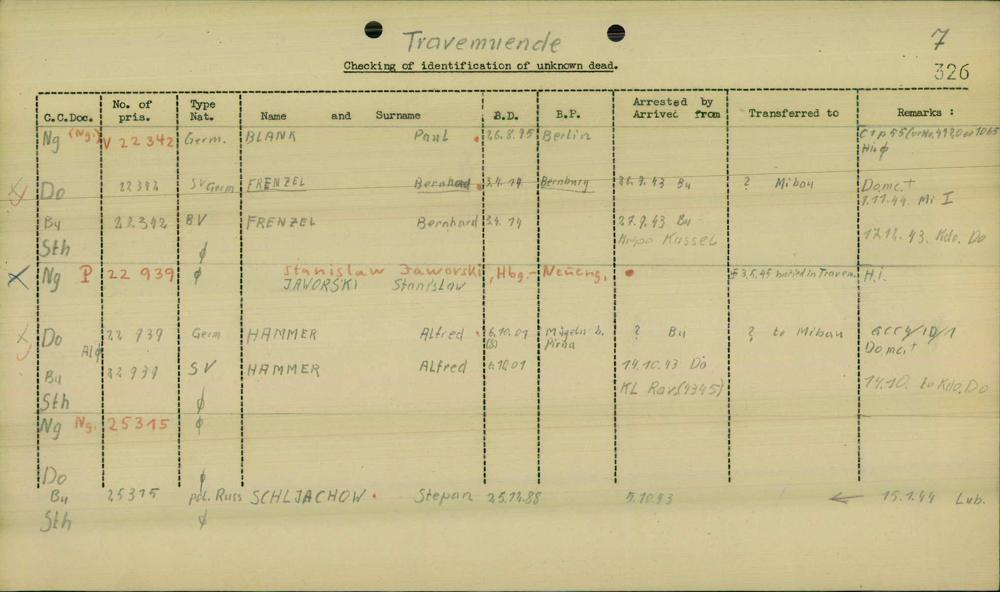 Travemuende
7
Checking of identification of unknown dead.
326
C.C.Doc. No. of pris. Type Nat. Name and Surname B.D. B.P. Arrested by Arrived from Transferred to Remarks :
Ng (Ng.) V 22 342 Germ. BLANK Paul 26.8.95 Berlin
Hi ϕ
Do 22342 SV Germ FRENZEL Bernhard 3.4.14 Bernburg Bu ? Mibau Do.mc.+
1.11.44. Mi I
Bu 22.342 BV FRENZEL Bernhard 3.4.14 27.9.43 Bu
Sth ϕ Kripo Kassel 17.12.43. Kdo. Do
Ng P 22 939 ϕ Stanislaw Jaworski, Hbg.- Neueng. 3.5.45 buried in Travem. H.i.
JAWORSKI Stanislaw
Do 22 939 Germ HAMMER Alfred 6.10.01 Mügeln b. Pirna ? Bu ? to Mibau GCC4/10/1
Do.mc.+
Bu 22 939 SV HAMMER Alfred 6.10.01 14.10.43 Do
Sth ϕ KL Rav.(4345) 14.10. to Kdo. Do
Ng Ng. 25315 ϕ
Do ϕ
Bu 25315 pol. Russ SCHLJACHOW Stepan 25.12.88 5.10.43 ← 15.1.44 Lub.
Sth ϕ